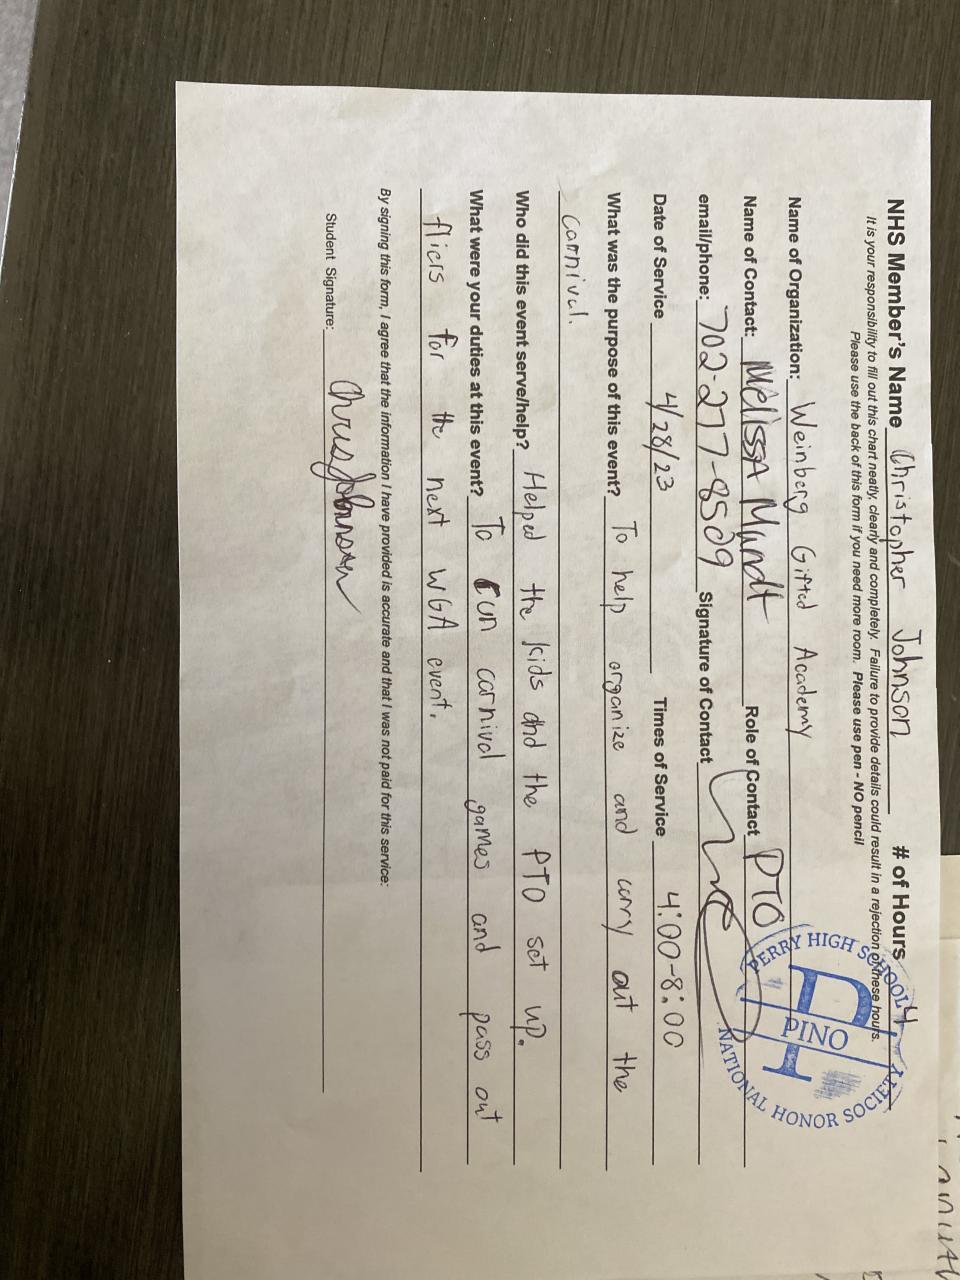 NHS Member's Name Christopher Johnson # of Hours 4
It is your responsibility to fill out this chart neatly, clearly and completely. Failure to provide details could result in a rejection of these hours.
Please use the back of this form if you need more room. Please use pen - NO pencil
Name of Organization: Weinberg Gifted Academy
Name of Contact: Melissa Mundt Role of Contact PTO
email/phone: 702-277-8509 Signature of Contact
Date of Service 4/28/23 Times of Service 4:00-8:00
What was the purpose of this event? To help organize and carry out the
carnival.
Who did this event serve/help? Helped the kids and the PTO set up.
What were your duties at this event? To run carnival games and pass out
fliers for the next WGA event.
By signing this form, I agree that the information I have provided is accurate and that I was not paid for this service:
Student Signature: Chris Johnson
PERRY HIGH SCHOOL
P
PINO
NATIONAL HONOR SOCIETY